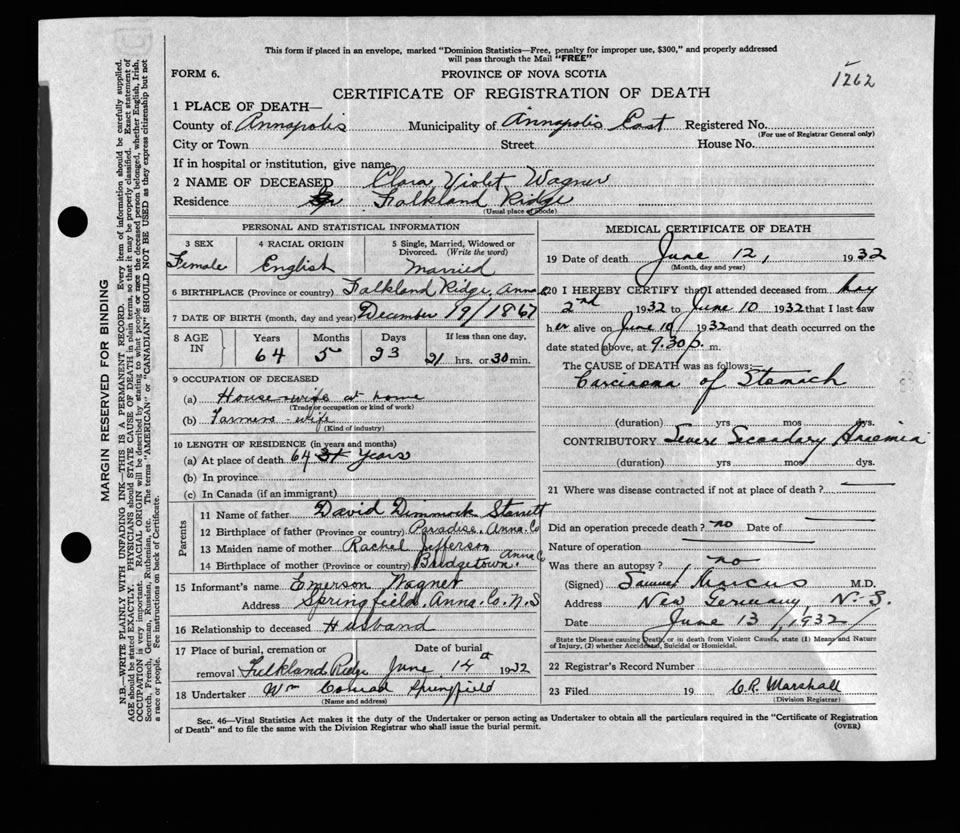 This form if placed in an envelope, marked "Dominion Statistics—Free, penalty for improper use, $300," and properly addressed
will pass through the Mail "FREE"
FORM 6.
PROVINCE OF NOVA SCOTIA
1262
CERTIFICATE OF REGISTRATION OF DEATH
1 PLACE OF DEATH—
County of Annapolis Municipality of Annapolis East Registered No.
(For use of Registrar General only)
City or Town Street House No.
If in hospital or institution, give name
2 NAME OF DECEASED Clara Violet Wagner
Residence Falkland Ridge
(Usual place of abode)
PERSONAL AND STATISTICAL INFORMATION
3 SEX 4 RACIAL ORIGIN 5 Single, Married, Widowed or
Divorced. (Write the word)
Female English Married
6 BIRTHPLACE (Province or country) Falkland Ridge, Anna Co
7 DATE OF BIRTH (month, day and year) December 19/1867
8 AGE IN Years Months Days If less than one day,
64 5 23 21 hrs. or 30 min.
9 OCCUPATION OF DECEASED
(a) House-wife at home
(Trade or occupation or kind of work)
(b) Farmers-wife
(Kind of industry)
10 LENGTH OF RESIDENCE (in years and months)
(a) At place of death 64 Years
(b) In province
(c) In Canada (if an immigrant)
Parents
11 Name of father David Dimmock Starratt
12 Birthplace of father (Province or country) Paradise, Anna. Co
13 Maiden name of mother Rachel Jefferson
14 Birthplace of mother (Province or country) Bridgetown. Anna C
15 Informant's name Emerson Wagner
Address Springfield, Anna. Co. N.S
16 Relationship to deceased Husband
17 Place of burial, cremation or Date of burial
removal Falkland Ridge June 14th 1932
18 Undertaker Wm Conrad Springfield
(Name and address)
MEDICAL CERTIFICATE OF DEATH
19 Date of death June 12, 1932
(Month, day and year)
20 I HEREBY CERTIFY that I attended deceased from May
2nd 1932 to June 10 1932 that I last saw
her alive on June 10 1932 and that death occurred on the
date stated above, at 9.30 p. m.
The CAUSE OF DEATH was as follows:—
Carcinoma of Stomach
(duration) yrs mos dys.
CONTRIBUTORY Severe Secondary Anaemia
(duration) yrs mos dys.
21 Where was disease contracted if not at place of death?
Did an operation precede death? no Date of
Nature of operation
Was there an autopsy? no
(Signed) Samuel Marcus M.D.
Address New Germany N.S.
Date June 13/1932
State the Disease causing Death, or in death from Violent Causes, state (1) Means and Nature
of Injury, (2) whether Accidental, Suicidal or Homicidal.
22 Registrar's Record Number
23 Filed 19 C.R. Marshall
(Division Registrar)
Sec. 46—Vital Statistics Act makes it the duty of the Undertaker or person acting as Undertaker to obtain all the particulars required in the "Certificate of Registration
of Death" and to file the same with the Division Registrar who shall issue the burial permit.
(OVER)
MARGIN RESERVED FOR BINDING
N.B.—WRITE PLAINLY WITH UNFADING INK—THIS IS A PERMANENT RECORD. Every item of information should be carefully supplied.
AGE should be stated EXACTLY. PHYSICIANS should STATE CAUSE OF DEATH in plain terms, so that it may be properly classified. Exact statement of
OCCUPATION is very important. RACIAL ORIGIN will be described by stating to what people or race the deceased person belonged, whether English, Irish,
Scotch, French, German, Russian, Ruthenian, etc. The terms "AMERICAN" or "CANADIAN" SHOULD NOT BE USED as they express citizenship but not
a race or people. See instructions on back of Certificate.